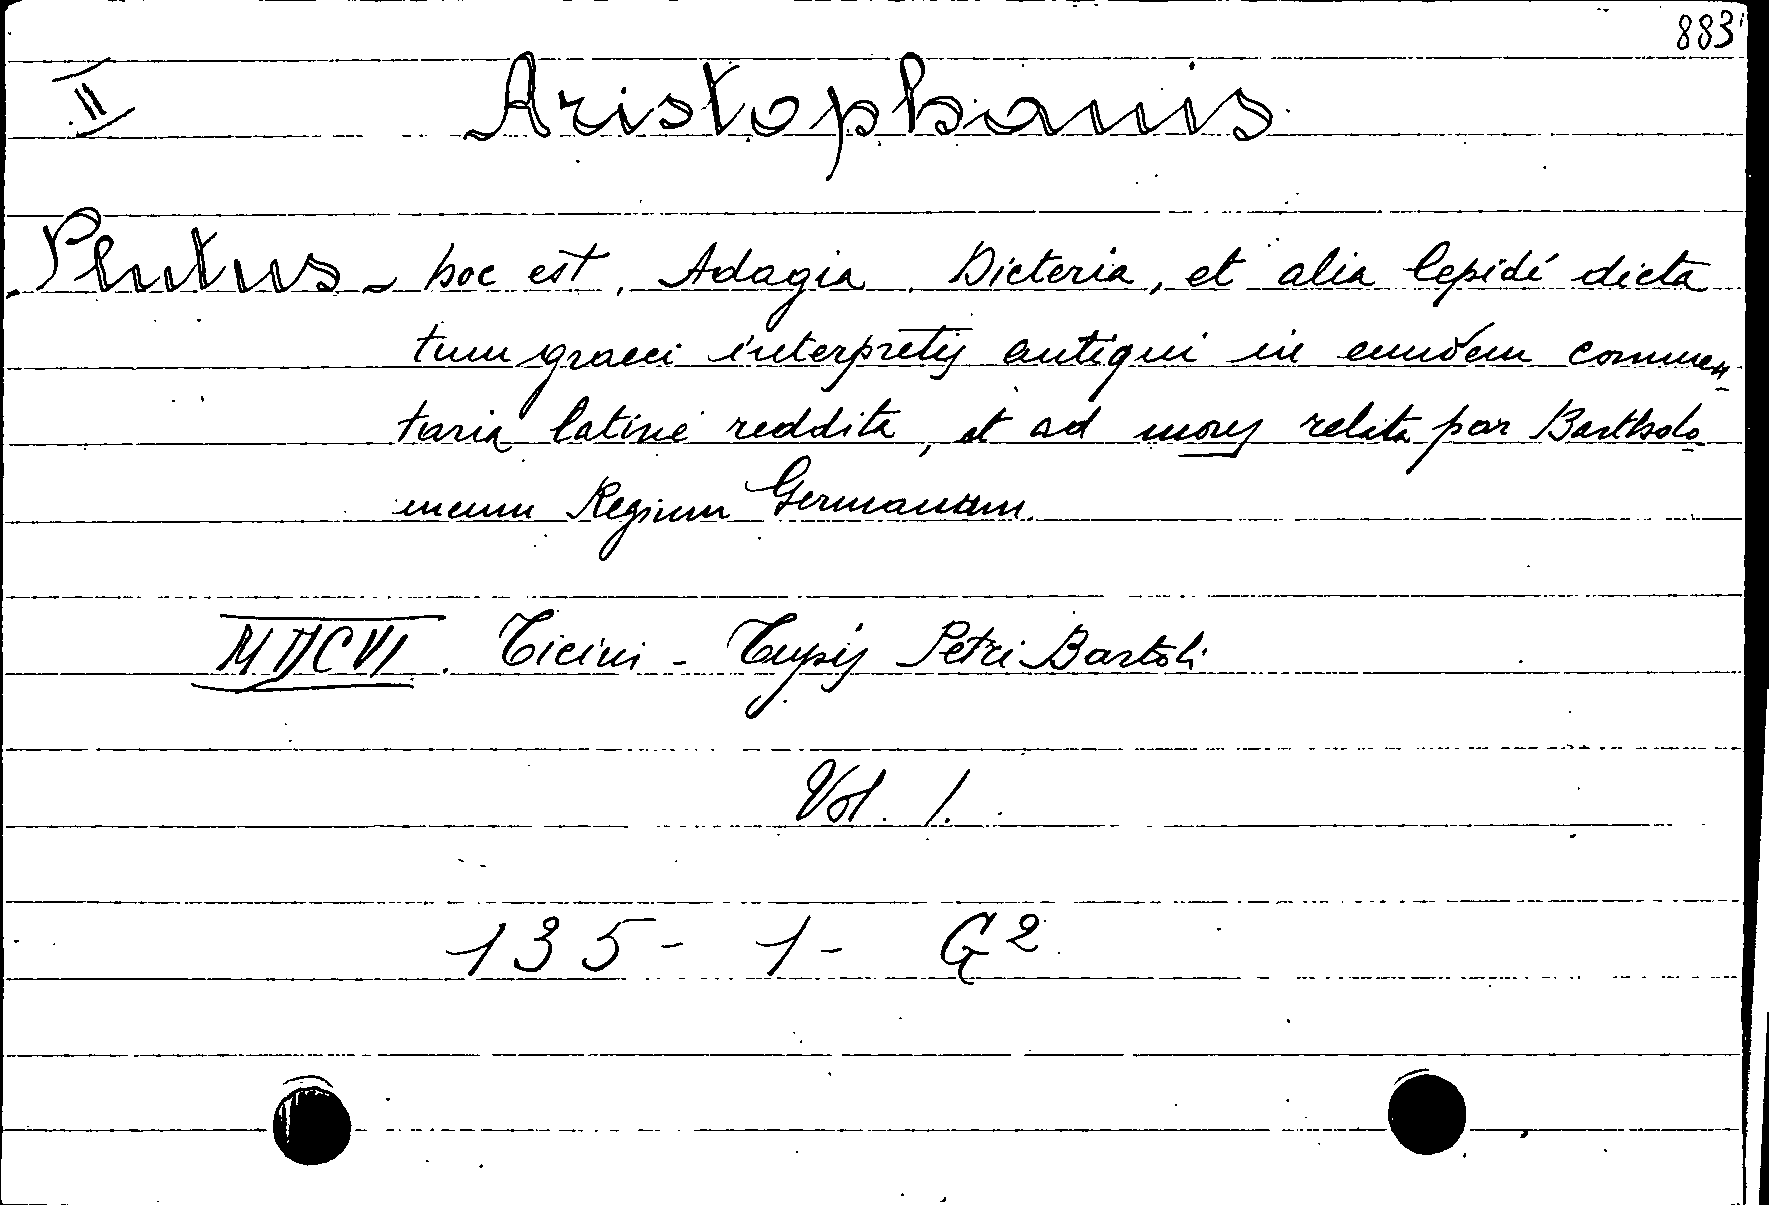 883
II
Aristophanis
Plutus - hoc est, Adagia. Dicteria, et alia lepidé dicta
tum graeci interpretis antiqui in eundem commen-
taria latine reddita, et ad mores relata per Bartholo-
meum Regium Germanum.
MDCVI. Ticini - Typis Petri Bartoli
Vol. 1.
135 - 1 - G2